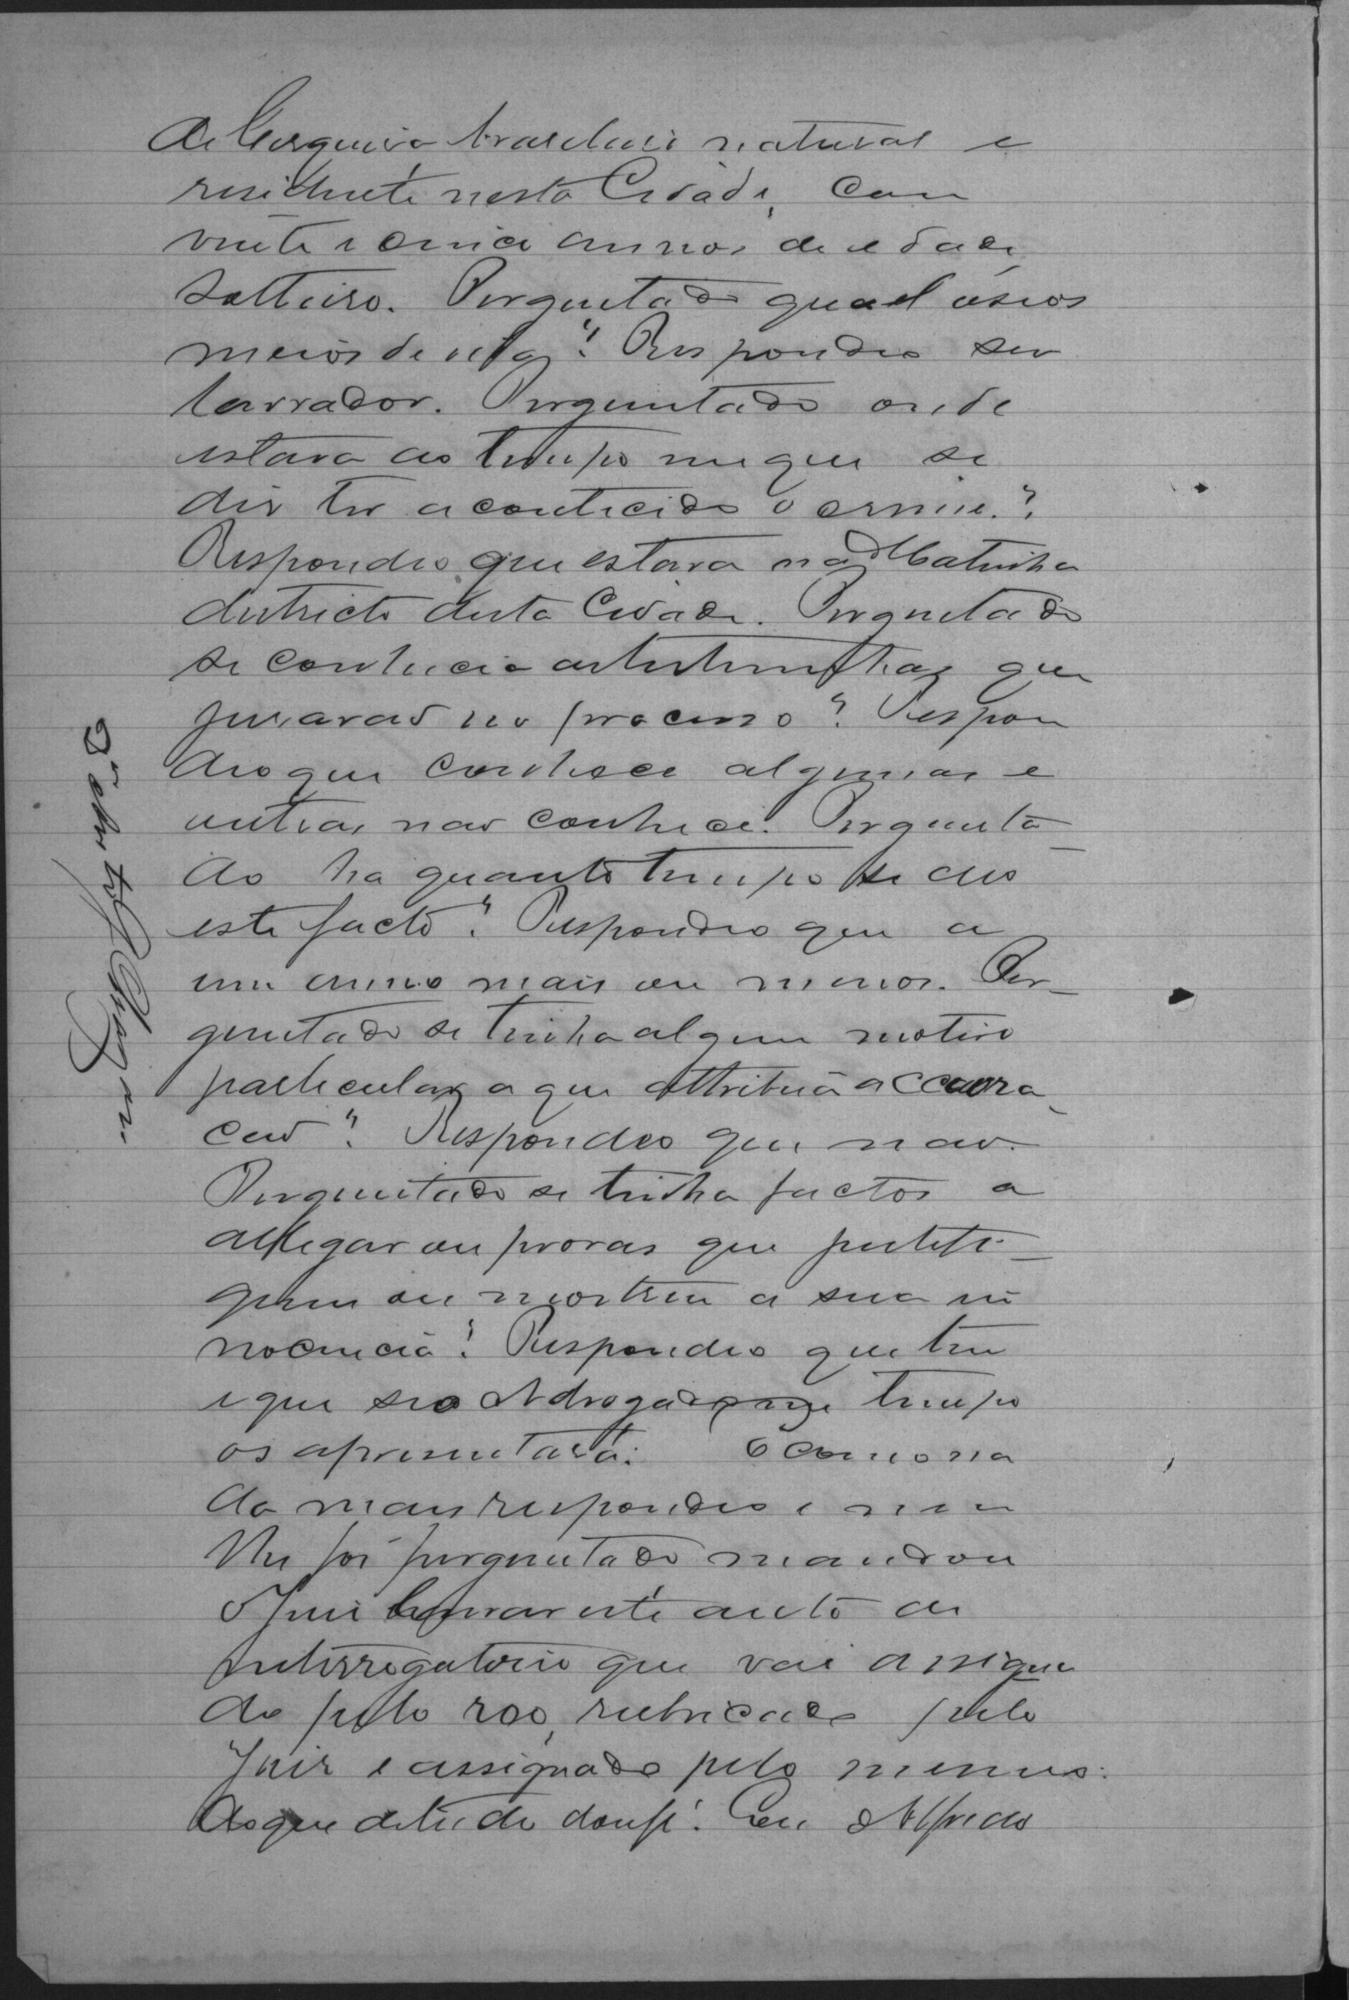 de Cerqueira brasileiro natural e
residente nesta Cidade, com
vinte e cinco annos de edade
solteiro. Perguntado qual os seos
meios de vida? Respondeo ser
lavrador. Perguntado onde
estava ao tempo em que se
diz ter acontecido o crime?
Respondeo que estava na Matinha
districto desta Cidade. Perguntado
se conhecia as testemunhas que
juraraõ no processo? Respon
deo que conhece algumas e
outras naõ conhece. Pergunta-
do ha quanto tempo se deo
este facto? Respondeo que a
um anno mais ou menos. Per-
guntado se tinha algum motivo
particular a que attribuia accusa-
çaõ? Respondeo que naõ.
Perguntado se tinha factos a
allegar ou provas que justifi-
quem ou mostrem a sua in
nocencia? Respondeo que tem
e que seo Advogado tempo
os apresentará. E como na
da mais respondeo e nem
lhe foi perguntado mandou
o Juiz lavrar este auto de
interrogatorio que vai assigna
do pelo reo, rubricado pelo
Juiz e assignado pelo mesmo.
Do que de tudo dou fé. Eu Alfredo